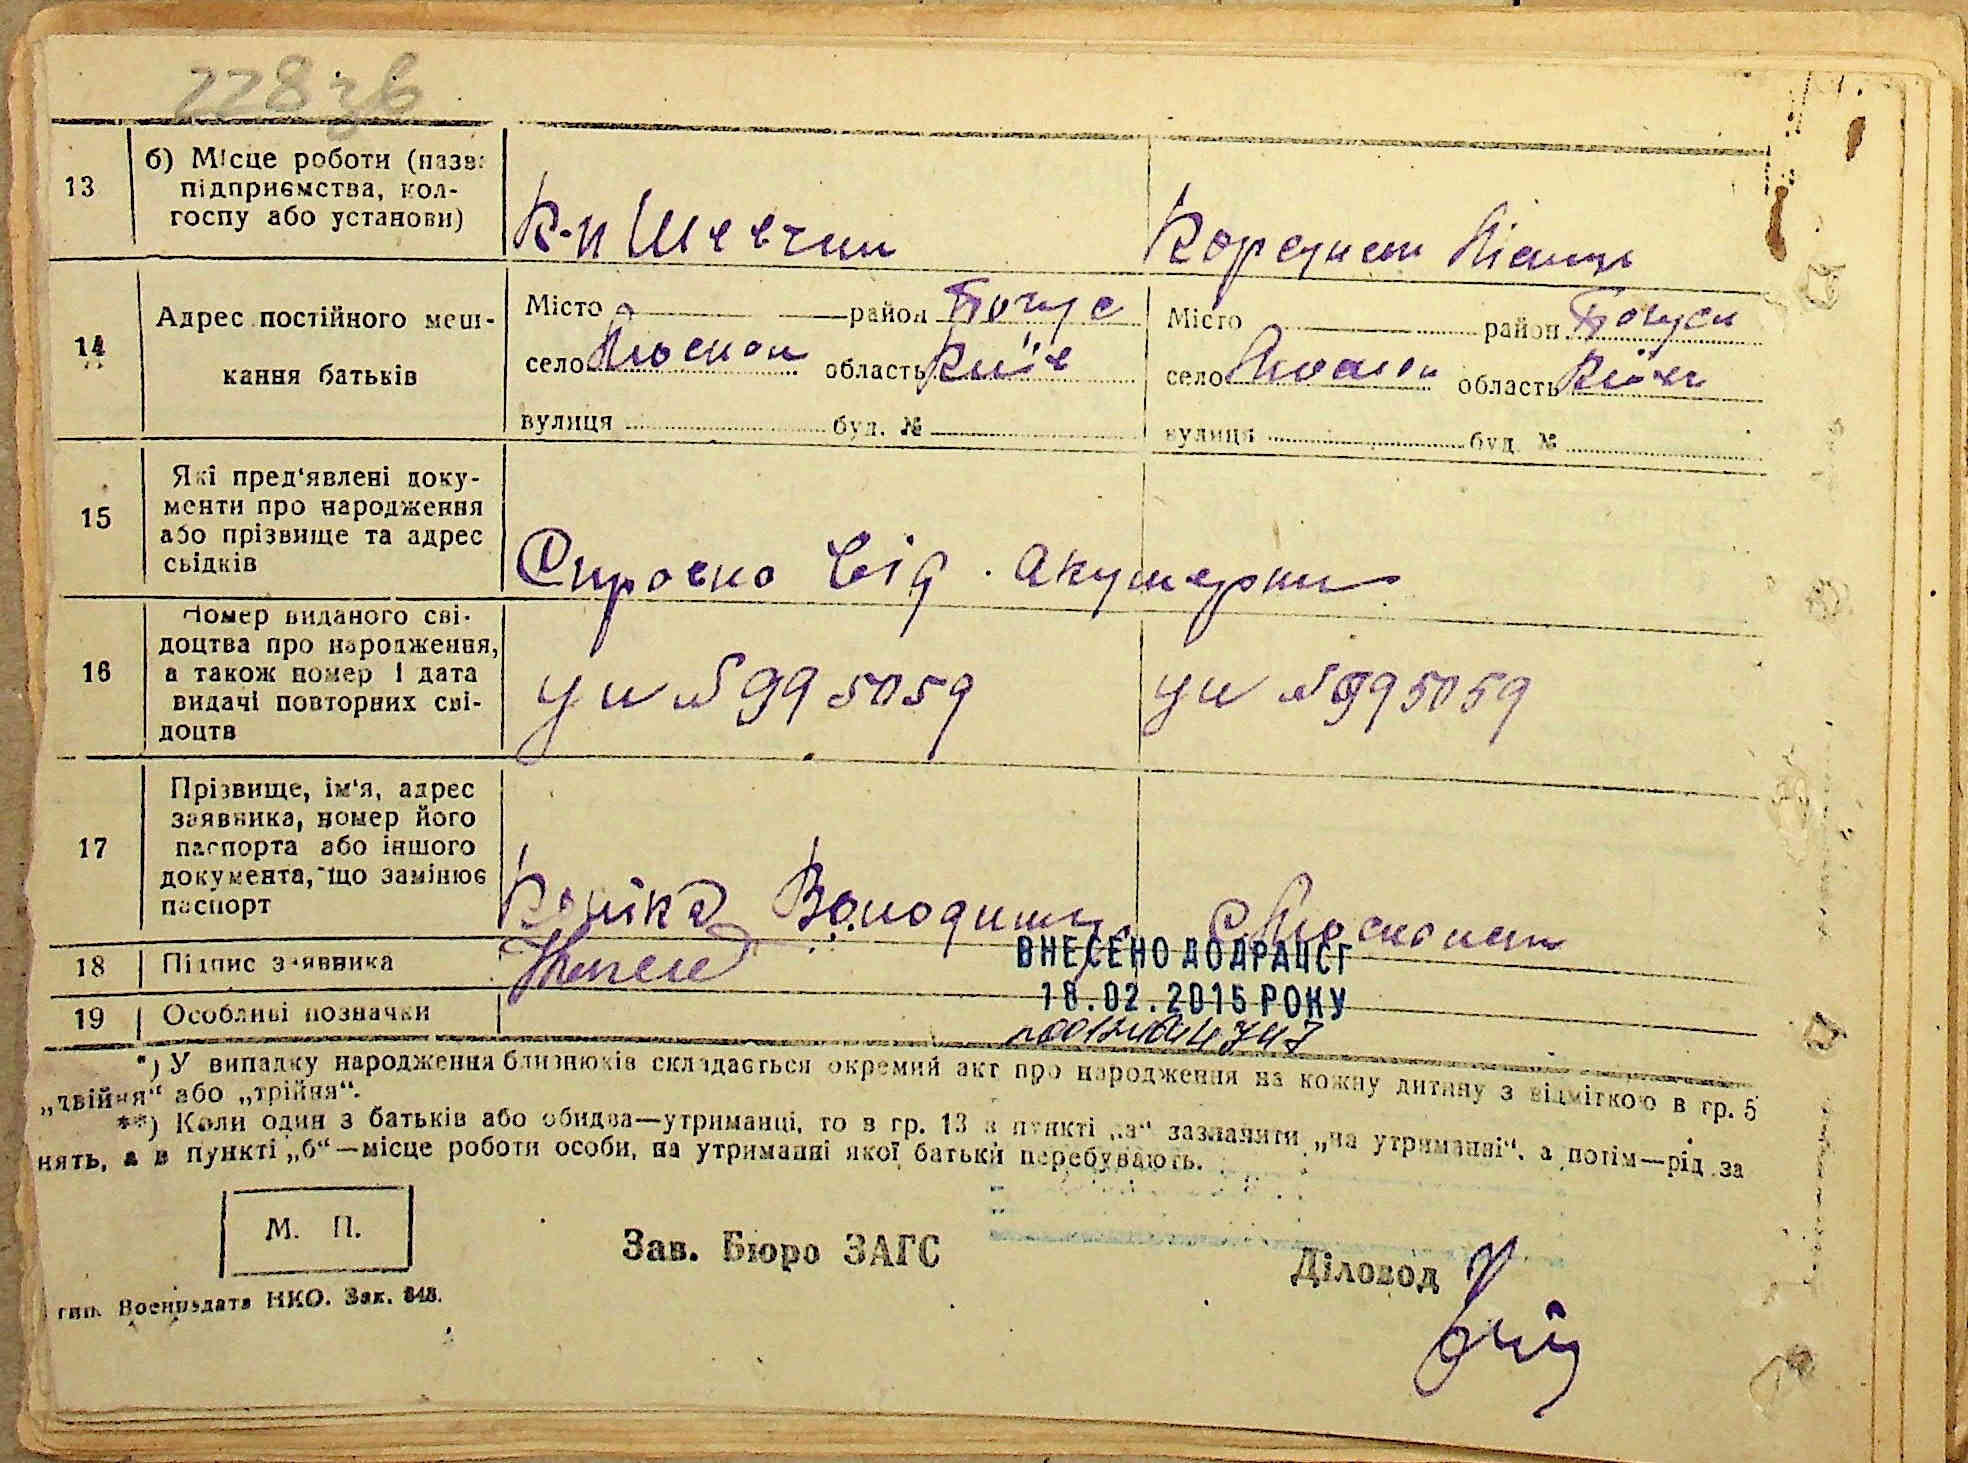 228зв
13
б) Місце роботи (назва
підприємства, кол-
госпу або установи)
К-п Шевчен
14
Адрес постійного меш-
кання батьків
Місто район Богус
село область Київ
вулиця буд. №
Місто район Богусл
село область Київ
вулиця буд. №
15
Які пред'явлені доку-
менти про народження
або прізвище та адрес
свідків
від акушерки
16
Номер виданого сві-
доцтва про народження,
а також номер і дата
видачі повторних сві-
доцтв
уи №995059
уи №995059
17
Прізвище, ім'я, адрес
заявника, номер його
паспорта або іншого
документа, що замінює
паспорт
Володимир
18
Підпис заявника
ВНЕСЕНО ДО ДРАЦСГ
18.02.2015 РОКУ
19
Особливі позначки
*) У випадку народження близнюків складається окремий акт про народження на кожну дитину з відміткою в гр. 5
„двійня“ або „трійня“.
**) Коли один з батьків або обидва—утриманці, то в гр. 13 в пункті „а“ зазначити „на утриманні“, а потім—рід за
нять, а в пункті „б“—місце роботи особи, на утриманні якої батьки перебувають.
М. П.
Зав. Бюро ЗАГС
Діловод
тип. Воениздата НКО. Зак. 848.